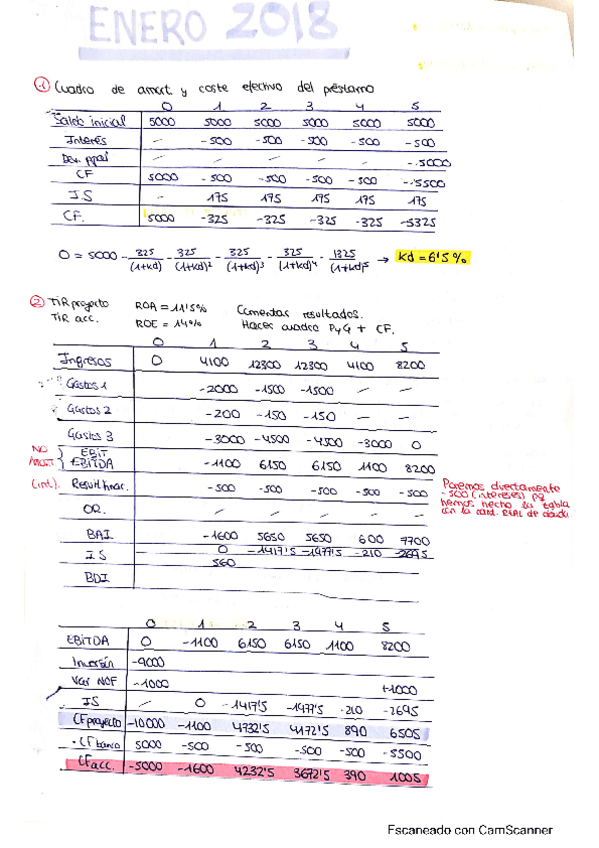 ENERO 2018
1 Cuadro de amort. y coste efectivo del préstamo
0 1 2 3 4 5
Saldo inicial 5000 5000 5000 5000 5000 5000
Interés - -500 -500 -500 -500 -500
Dev. ppal - - - - - -5000
CF 5000 -500 -500 -500 -500 -5500
I.S - 175 175 175 175 175
CF. 5000 -325 -325 -325 -325 -5325
0 = 5000 - 325/(1+kd) - 325/(1+kd)² - 325/(1+kd)³ - 325/(1+kd)⁴ - 1325/(1+kd)⁵ → kd = 6'5%
2 TIR proyecto ROA = 11'5% Comentar resultados.
TIR acc. ROE = 14% Hacer cuadro PyG + CF.
0 1 2 3 4 5
Ingresos 0 4100 12300 12300 4100 8200
Gastos 1 -2000 -1500 -1500 - -
Gastos 2 -200 -150 -150 - -
Gastos 3 -3000 -4500 -4500 -3000 0
NO AMORT } EBIT
EBITDA -1100 6150 6150 1100 8200
(int.) Result. financ. -500 -500 -500 -500 -500
Ponemos directamente
-500 (intereses) pq
hemos hecho la tabla
con la cant. REAL de deuda
OR. - - - - -
BAI. -1600 5650 5650 600 7700
I S 0 -1417'5 -1977'5 -210 -2695
560
BDI
0 1 2 3 4 5
EBITDA 0 -1100 6150 6150 1100 8200
Inversión -9000
Var NOF -1000 +1000
IS - 0 -1417'5 -1977'5 -210 -2695
CF proyecto -10000 -1100 4732'5 4172'5 890 6505
- CF banco 5000 -500 -500 -500 -500 -5500
CF acc. -5000 -1600 4232'5 3672'5 390 1005
Escaneado con CamScanner